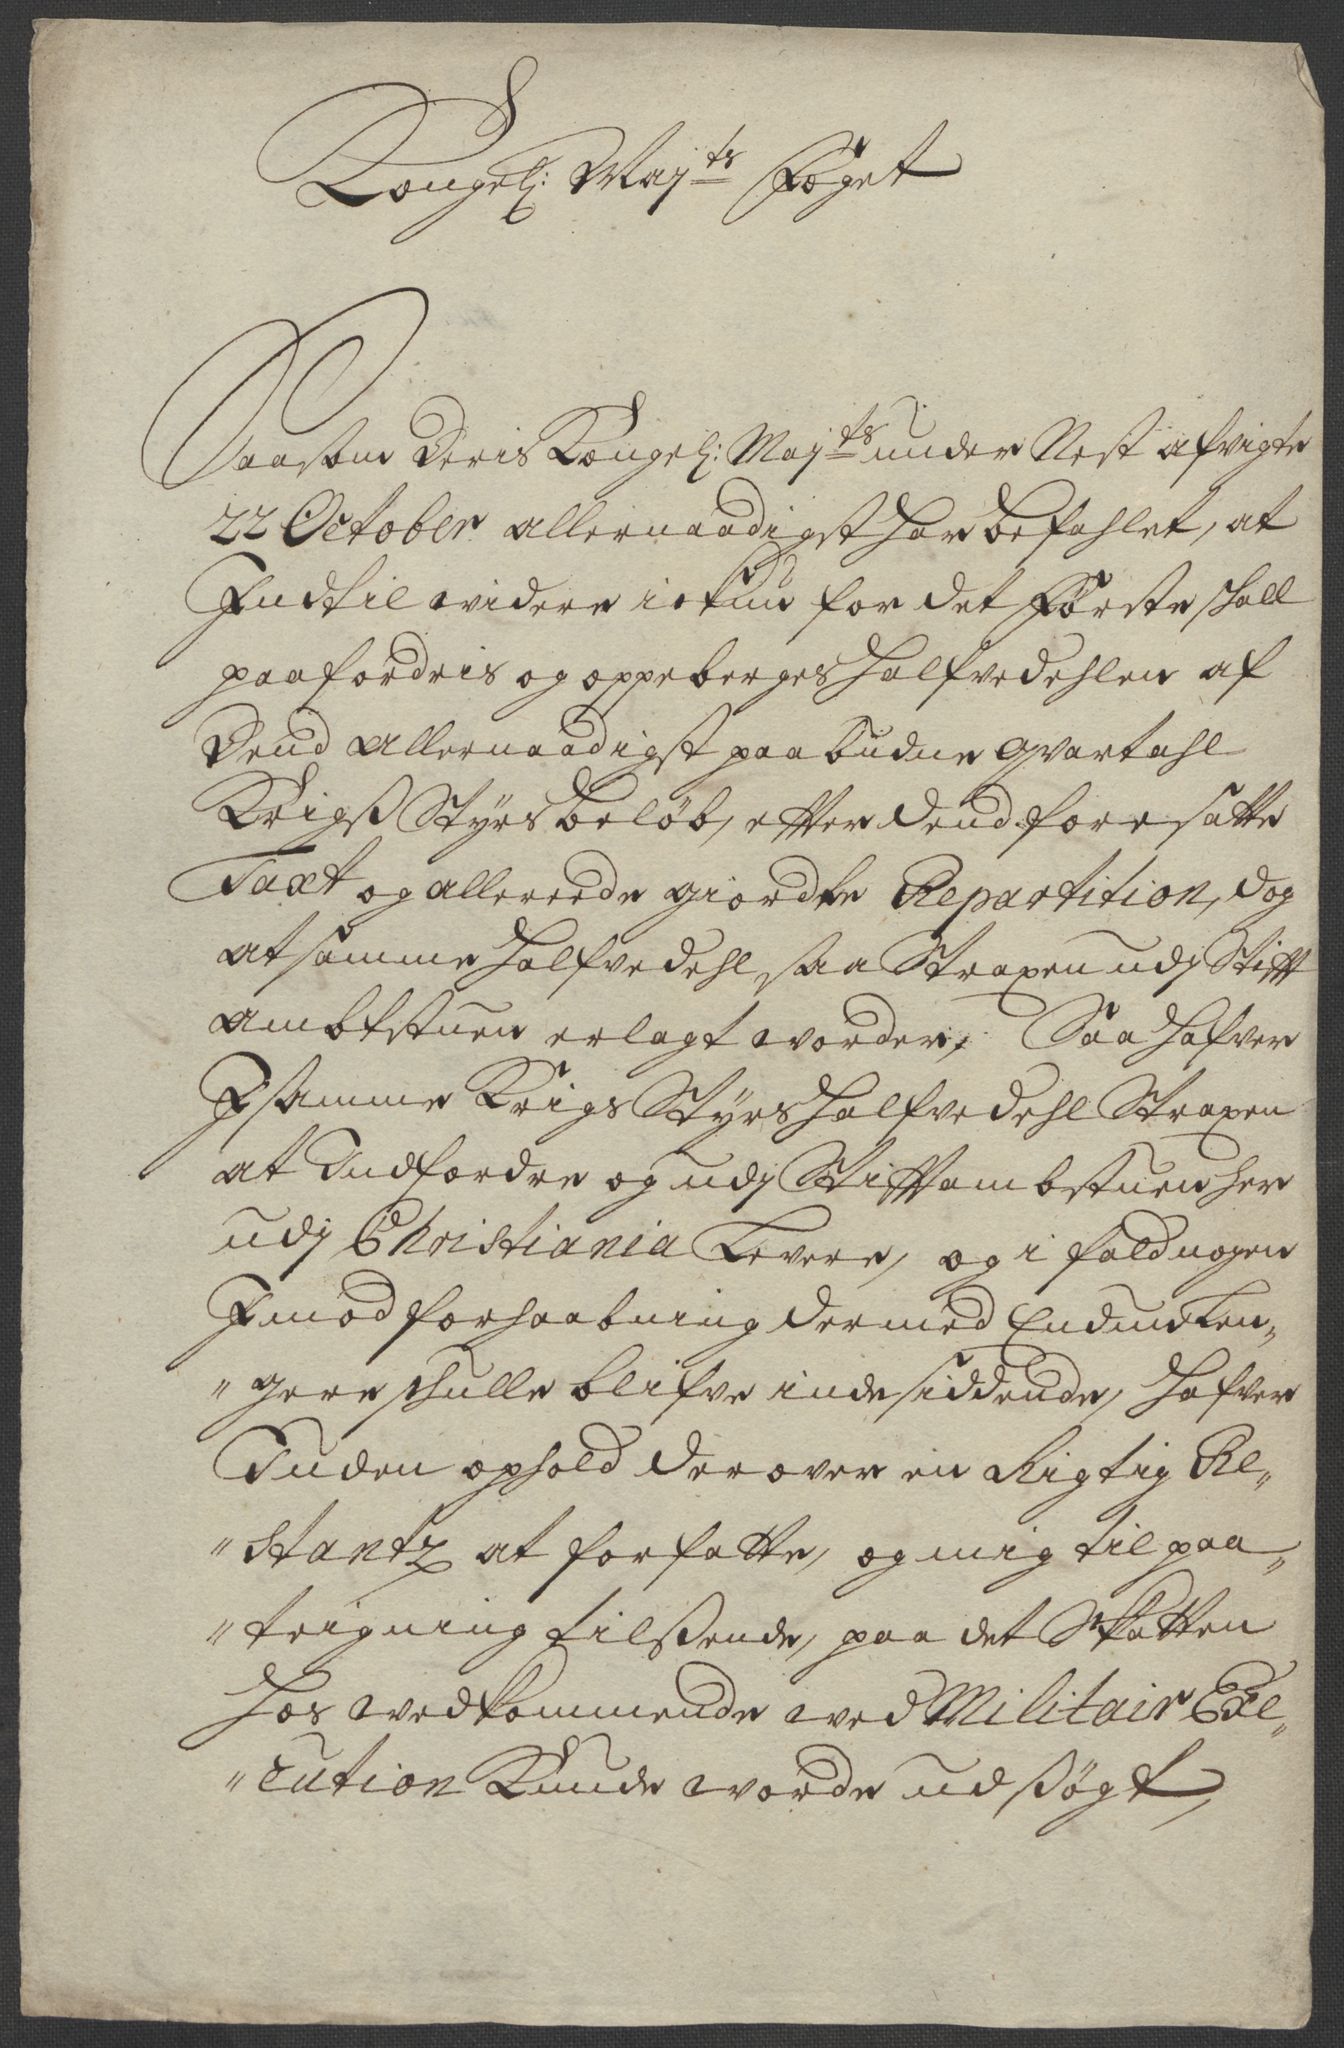 Kongel: Maÿ.ts Foget
Saasom Deris Kongel: Maÿts under Nest afvigte
22 October allernaadigst har befahlet, at
Indtil widere ickun for det Første skall
paafordris og oppeberges halfvedehlen af
Dend allernaadigst paabudne Qvartahl
Krigs Styrs beløb, efter dend foresatte
Taxt og allereede giordte Repartition, dog
at samme halfvedehl saa Straxen udj Stift
ambtstuen erlagt worder, Saa hafver
I samme Krigs Styrs halfvedehl Straxen
at Indfordre og udj Stiftambstuen her
udj Christiania Levere, og i fald nogen
Imod forhaabning dermed Endnu Len„
„gere skulle blifve indesiddende, hafver
I uden ophold derover en Rigtig Re„
„stantz at forfatte, og mig til paa„
„teigning tilsende, paa det Skatten
hos wedkommende wed Militair Exe„
„cution Kunde worde udsøgt,